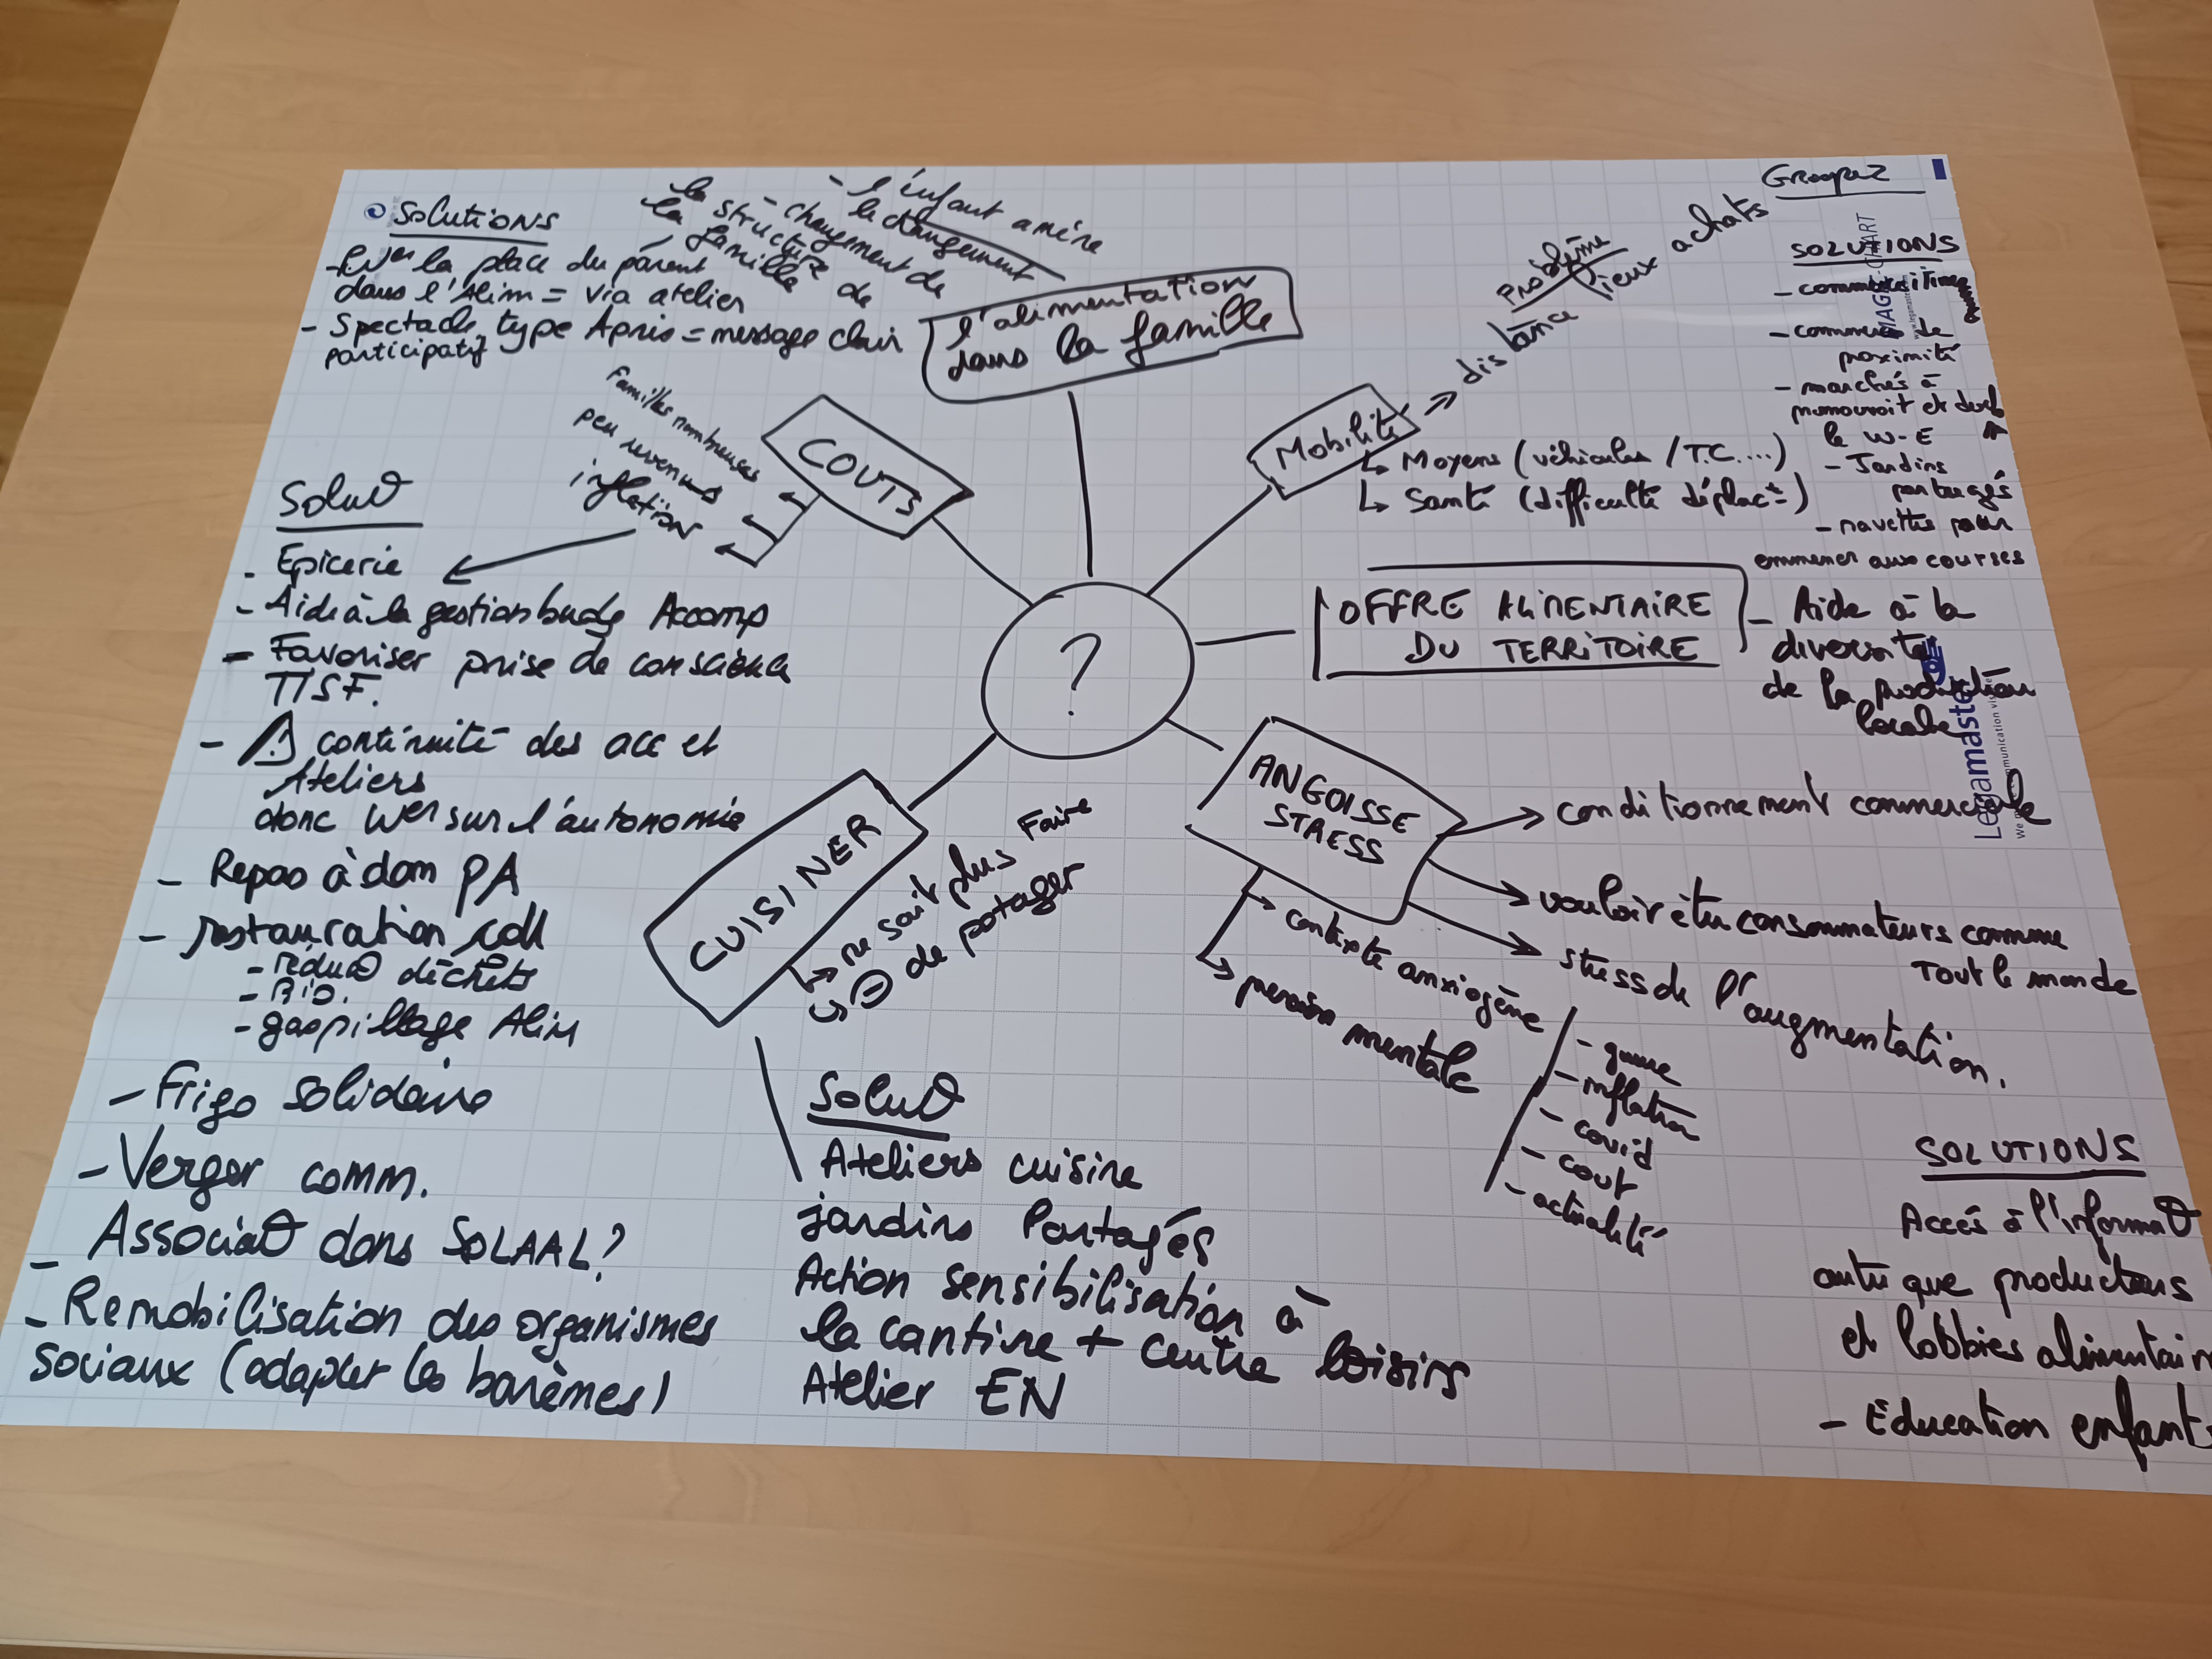 Groupe 2
SOLUTIONS
- la place du parent
dans l'Alim = via atelier
- Spectacle type Après = message clair
participatif
- l'enfant amène
le changement
- changement de
la structure de
la famille
l'alimentation
dans la famille
COUTS
Familles nombreuses
peu revenus
inflation
Mobilité
Problème
distance lieux achats
↳ Moyens (véhicules / T.C....)
↳ Santé (difficulté déplact)
SOLUTIONS
- commerce de
proximité
- marchés à
promouvoir et devel
le W-E
- Jardins
partagés
- navettes pour
emmener aux courses
?
OFFRE ALIMENTAIRE
DU TERRITOIRE
- Aide à la
diversité
de la production
locale
Legamaster
ANGOISSE
STRESS
conditionnement commercial
vouloir être consommateurs comme
tout le monde
stress de l'augmentation.
contexte anxiogène
mentale
- guerre
- inflation
- covid
- cout
- actualité
SOLUTIONS
Accés à l'informat°
autre que producteurs
et lobbies alimentair
- Education enfants
CUISINER
ne sait plus Faire
⊖ de potager
Solut°
Ateliers cuisine
jardins Partagés
Action sensibilisation à
la cantine + centre loisirs
Atelier EN
Solut°
- Epicerie
- Aide à la gestion budg Accomp
- Favoriser prise de conscience
TISF.
- ⚠ continuité des acc et
Ateliers
donc sur l'autonomie
- Repas à dom PA
- restauration coll
- réduct° déchets
- Bio.
- gaspillage Alim
- Frigo solidaire
- Verger comm.
- Associat° dons SOLAAL?
- Remobilisation des organismes
sociaux (adapter les barèmes)